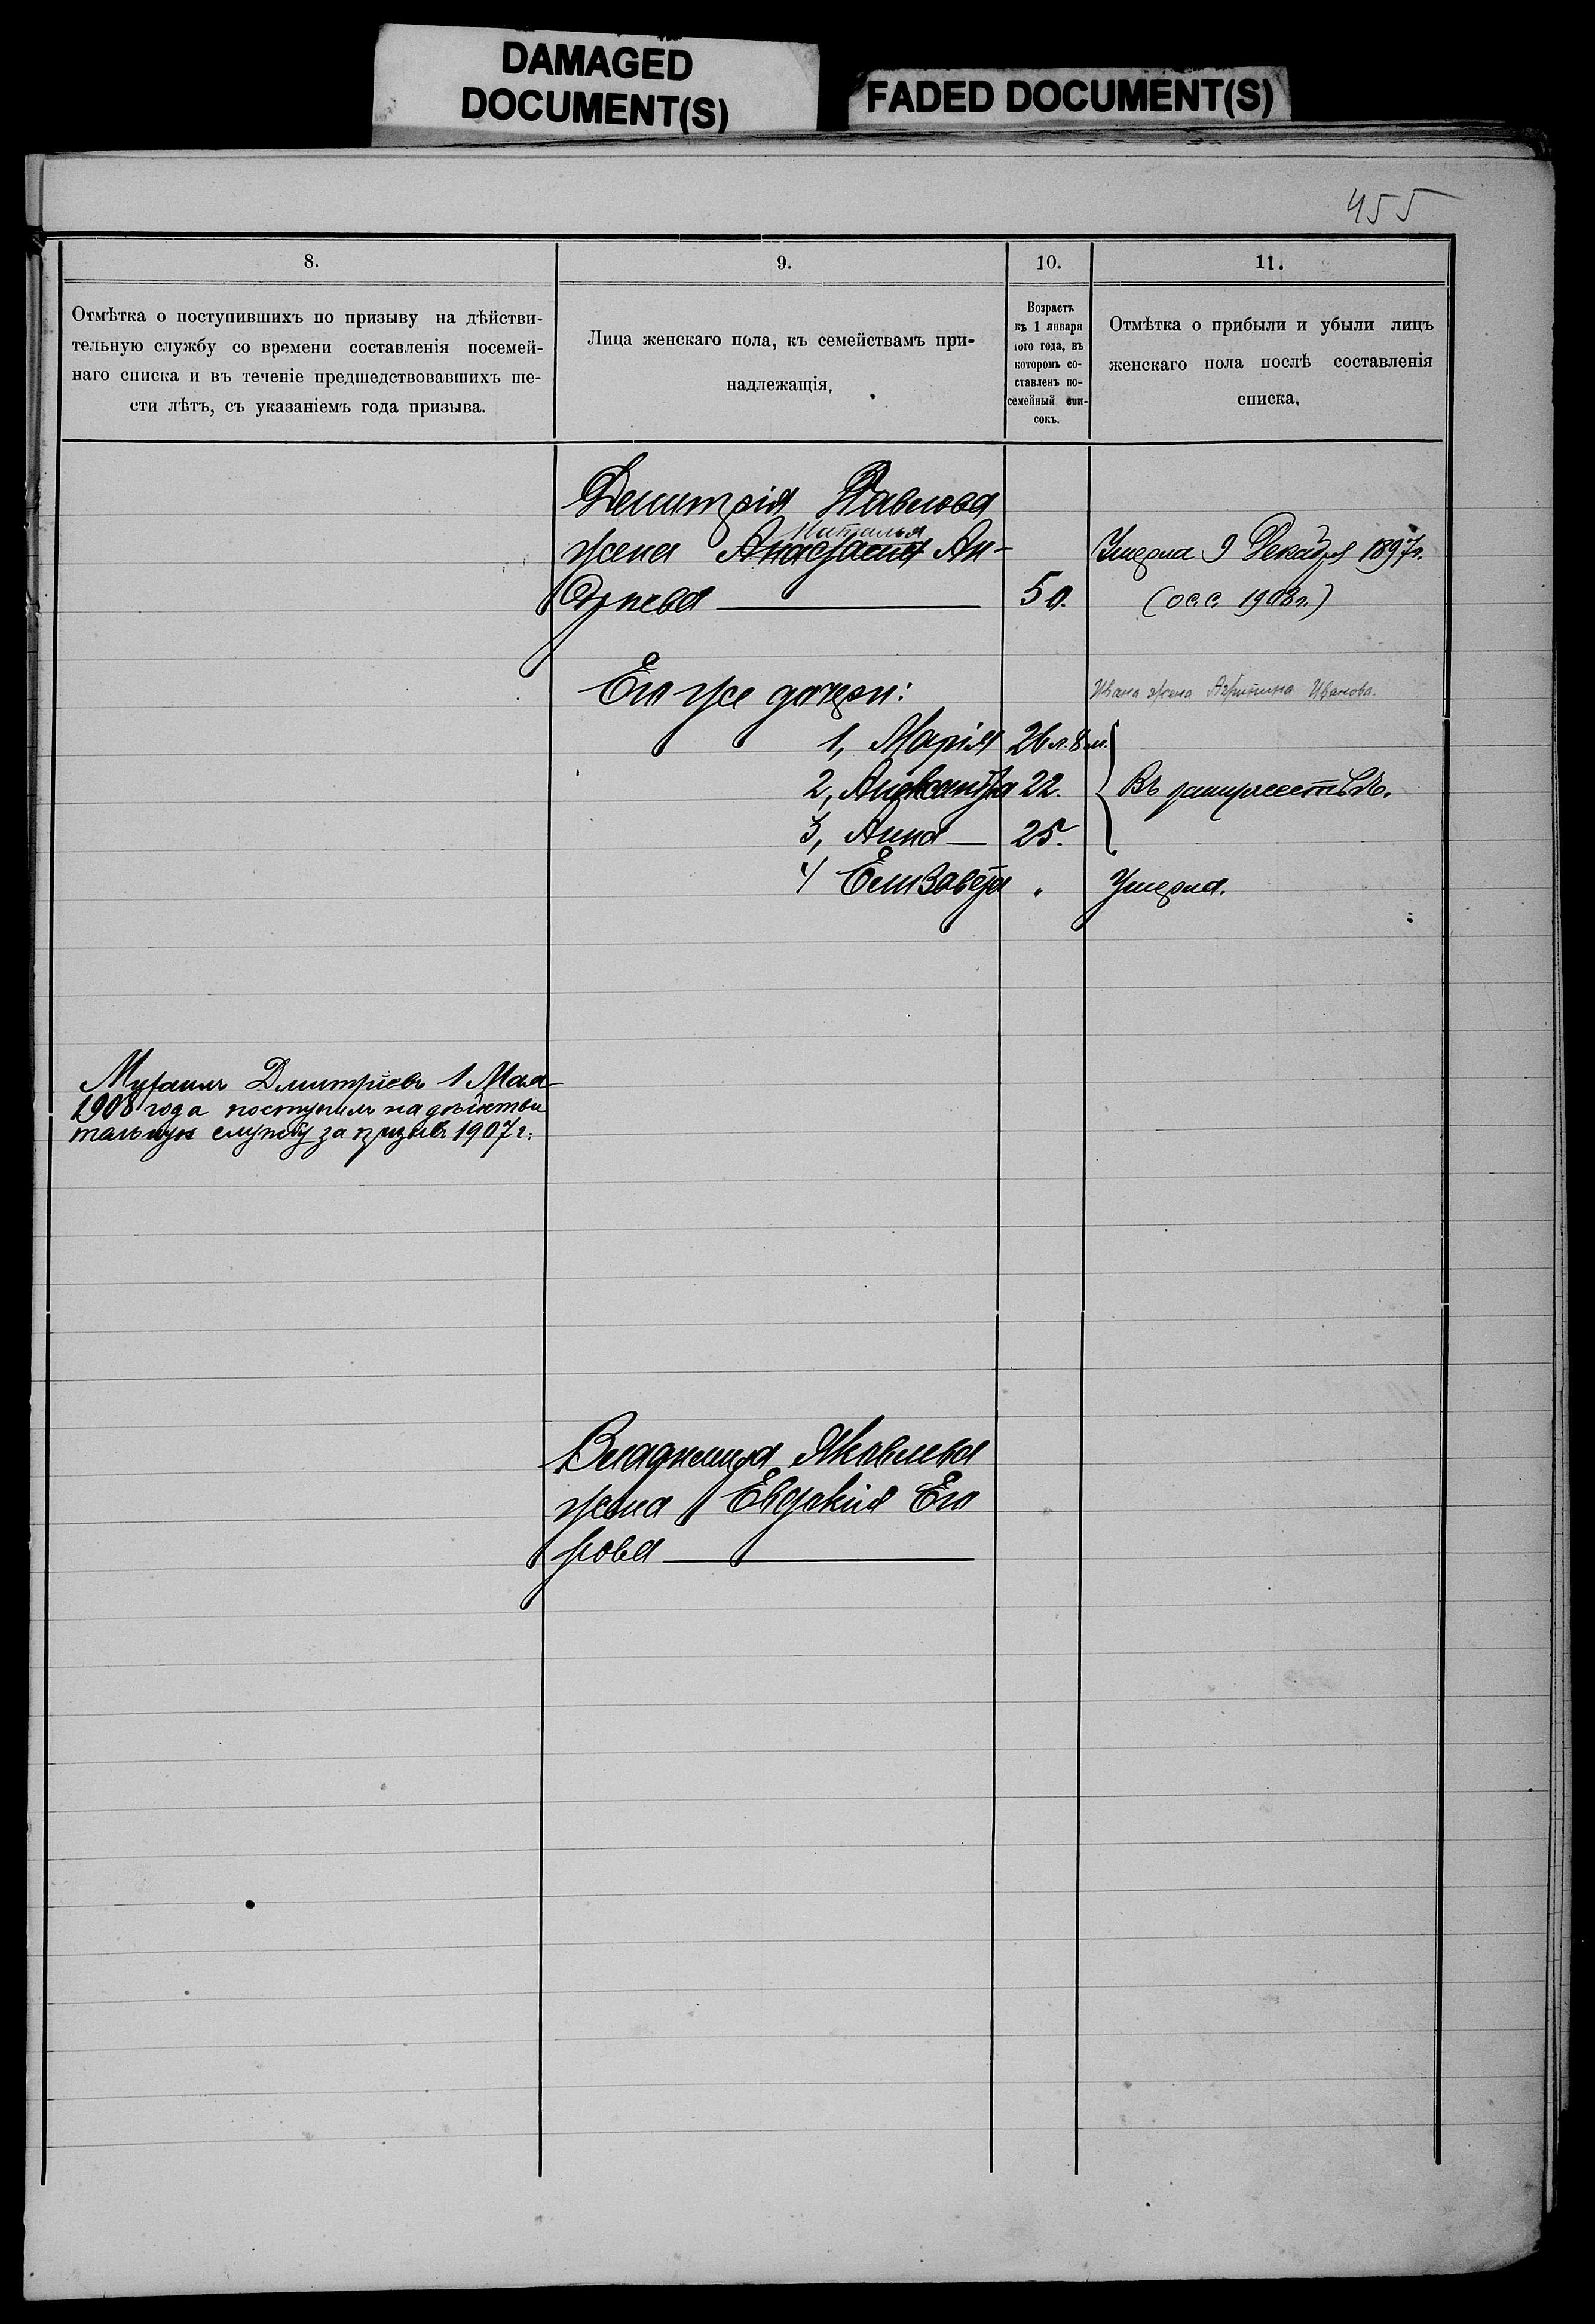 DAMAGED
DOCUMENT(S)
FADED DOCUMENT(S)
455
8.
9.
10.
11.
Отмѣтка о поступившихъ по призыву на дѣйстви-
тельную службу со времени составленія посемей-
наго списка и въ теченіе предшедствовавшихъ ше-
сти лѣтъ, съ указаніемъ года призыва.
Лица женскаго пола, къ семействамъ при-
надлежащія,
Возрастъ
къ 1 января
того года, въ
которомъ со-
ставленъ по-
семейный спи-
сокъ.
Отмѣтка о прибыли и убыли лицъ
женскаго пола послѣ составленія
списка.
Демитрія Павлова
Наталья
жена Анастасія Ан-
дрѣева 50.
Умерла 9 Декабря 1897г.
(ос.с. 1908г.)
Его же дочери:
Ивана жена Агрипина Иванова.
1, Марія 26 л. 8 м.
2, Александра 22.
Въ замужествѣ.
3, Анна 25.
4 Елизавета "
Умерла.
Михаилъ Дмитріевъ 1 Мая
1908 года поступилъ на дѣйстви
тельную службу за призывъ 1907 г.
Владимира Яковлева
жена Евдокія Его
рова